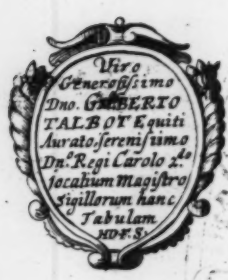 Viro
Generosissimo
Dno. GILBERTO
TALBOT Equiti
Aurato. serenissimo
Dnͦ. Regi Carolo 2.do
jocalium Magistro
sigillorum hanc
Tabulam
HD·F.S.